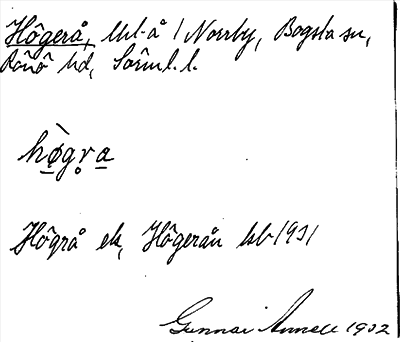 Högerå, bäå i Norrby, Bogsta sn,
Rönö hd, Sörml. l.
hø̀gr̥a
Högrå ek, Högerån lsb 1931
Gunnar Annell 1932